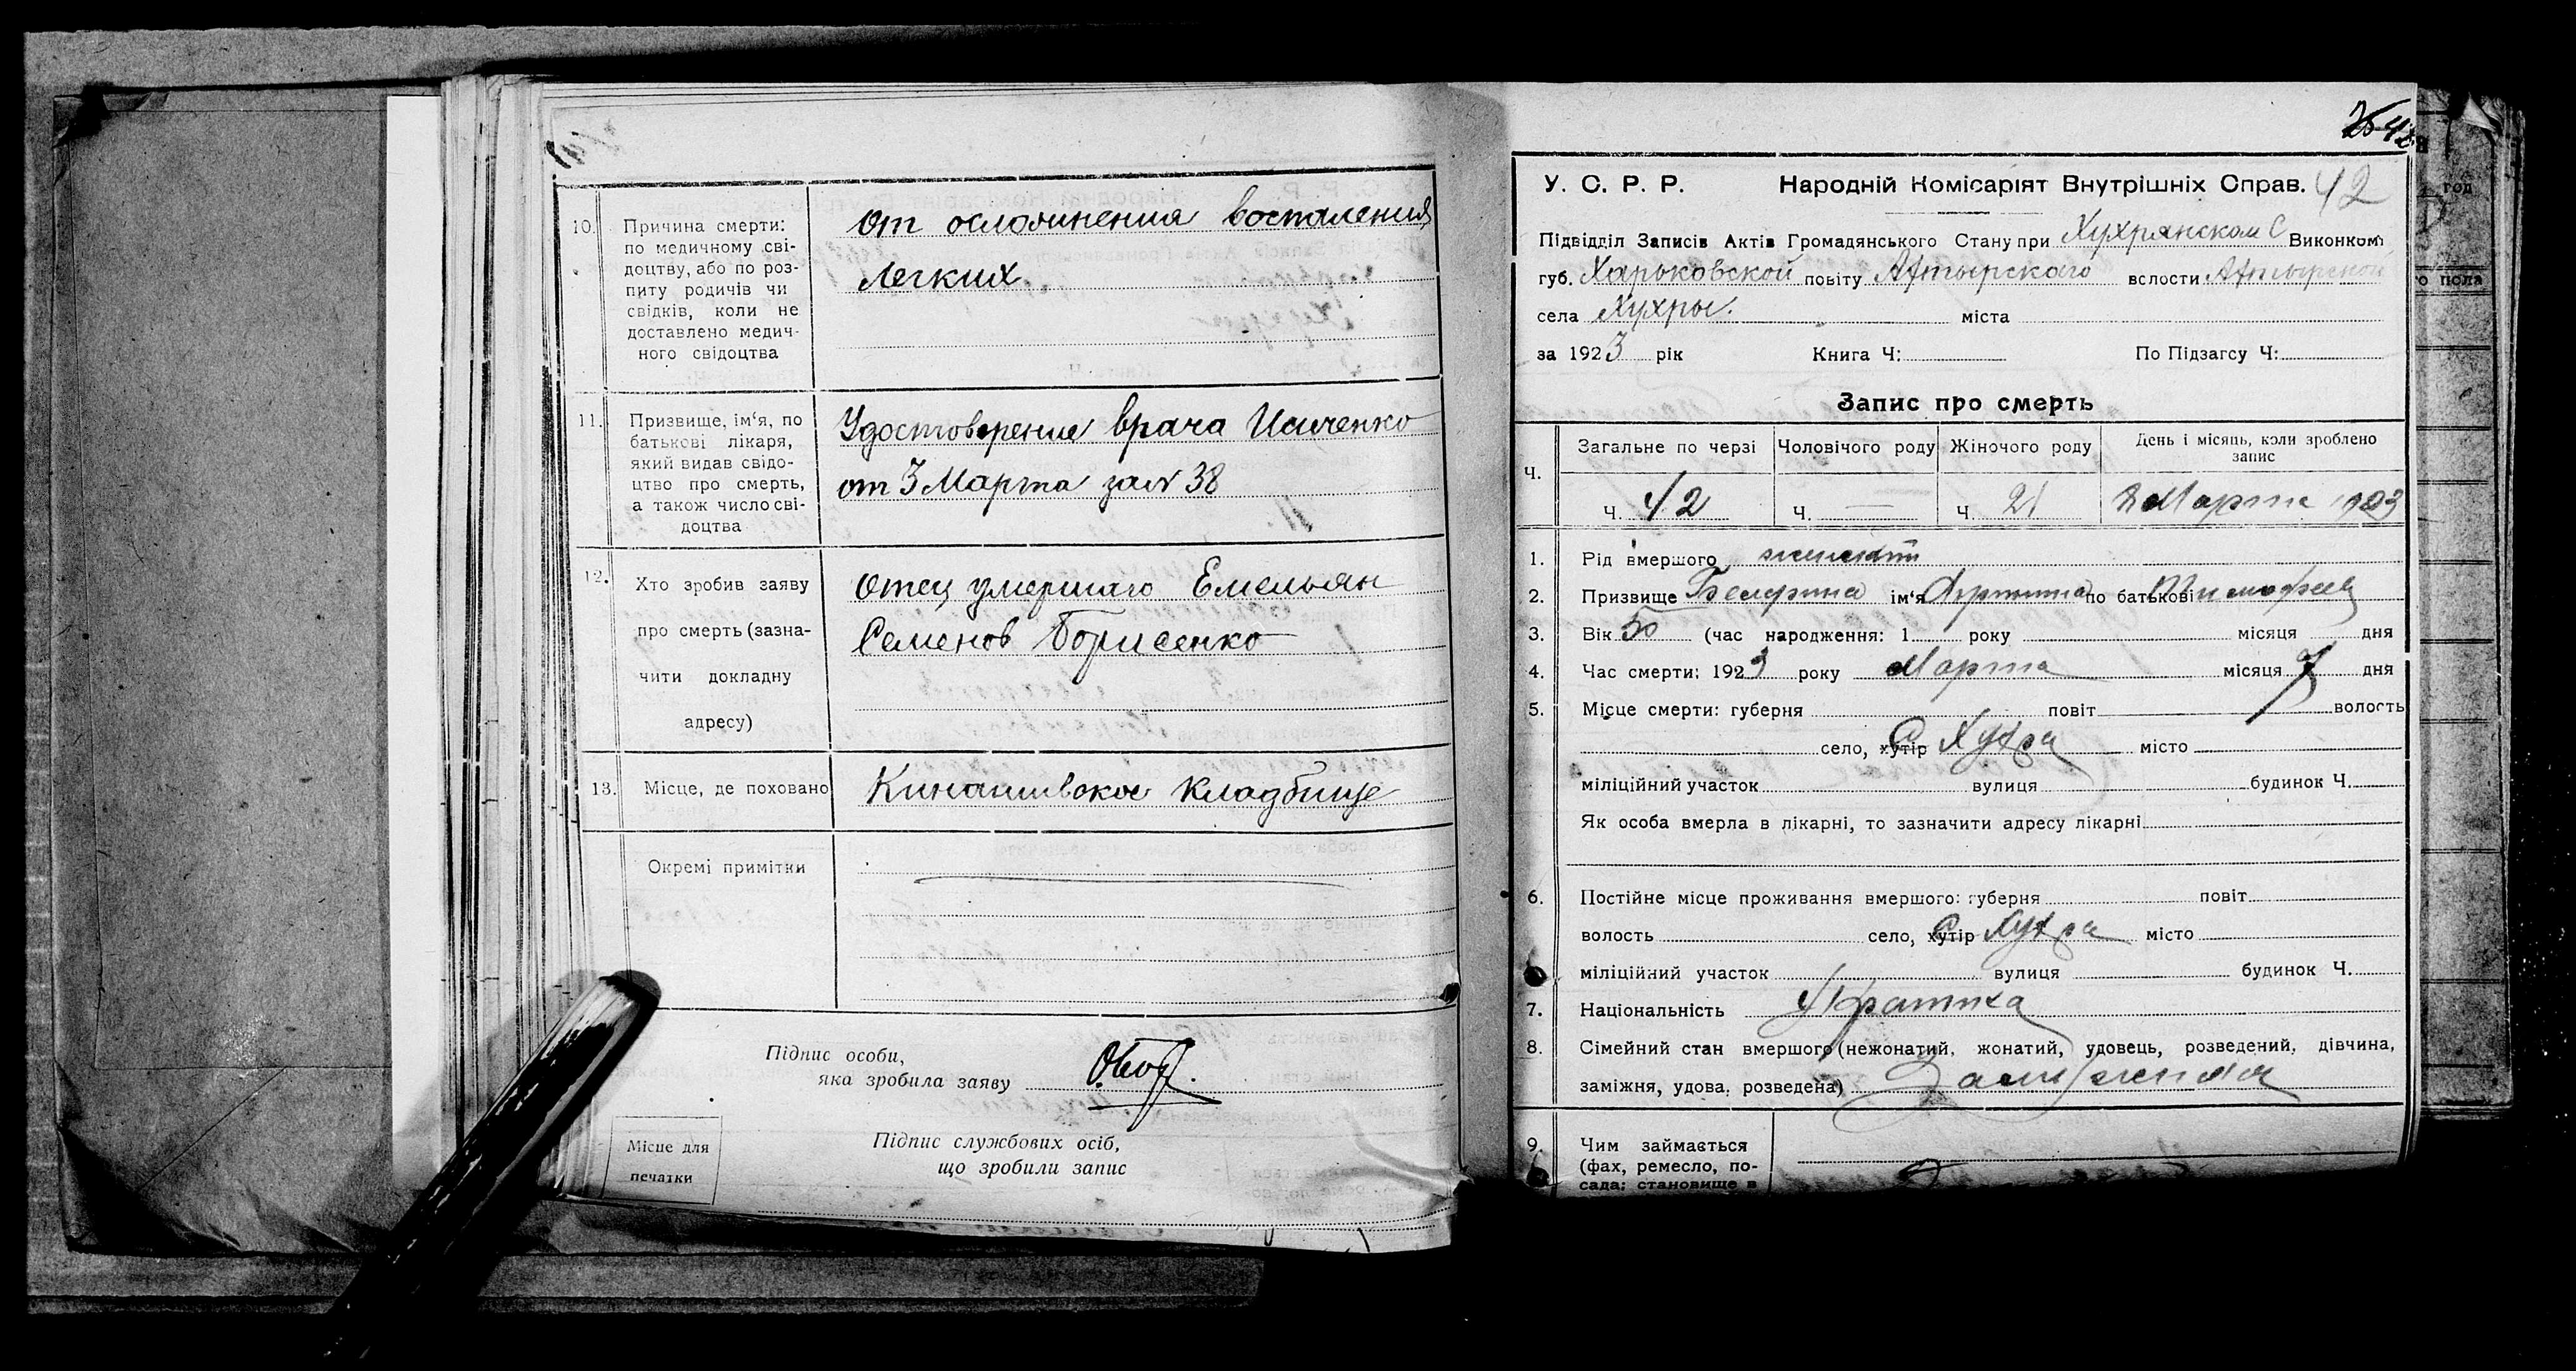 10. Причина смерти:
по медичному сві-
доцтву, або по роз-
питу родичів чи
свідків, коли не
доставлено медич-
ного свідоцтва
от осложнения воспаления
легких
11. Призвище, ім‘я, по
батькові лікаря,
який видав свідо-
цтво про смерть,
а також число сві-
доцтва
Удостоверение врача Исиченко
от 3 Марта за № 38
12. Хто зробив заяву
про смерть (зазна-
чити докладну
адресу)
Отец умершаго Емельян
Семенов Борисенко
13. Місце, де поховано
кладбище
Окремі примітки
Підпис особи,
яка зробила заяву
Місце для
печатки
Підпис службових осіб,
що зробили запис
42
У. С. Р. Р. Народній Комісаріят Внутрішніх Справ. 42
Підвідділ Записів Актів Громадянського Стану при Хухрянском С Виконкомі
губ. Харьковской повіту Ахтырскаго вслости Ахтырской
села Хухры. міста
за 1923 рік Книга Ч: По Підзагсу Ч:
Запис про смерть
Ч. Загальне по черзі Чоловічого роду Жіночого роду День і місяць, коли зроблено
запис
Ч. 42 Ч. — Ч. 21 8 Марта 1923
1. Рід вмершого женскій
2. Призвище ім‘я по батькові Тимофеев
3. Вік 50 (час народження: 1 року місяця дня
4. Час смерти: 1923 року Марта місяця 7 дня
5. Місце смерти: губерня повіт волость
село, хутір С Хухра місто
міліційний участок вулиця будинок Ч.
Як особа вмерла в лікарні, то зазначити адресу лікарні
6. Постійне місце проживання вмершого: губерня повіт
волость село, хутір С Хухра місто
міліційний участок вулиця будинок Ч.
7. Національність
8. Сімейний стан вмершого (нежонатий, жонатий, удовець, розведений, дівчина,
заміжня, удова, розведена)
9. Чим займається
(фах, ремесло, по-
сада; становище в
год
го пола